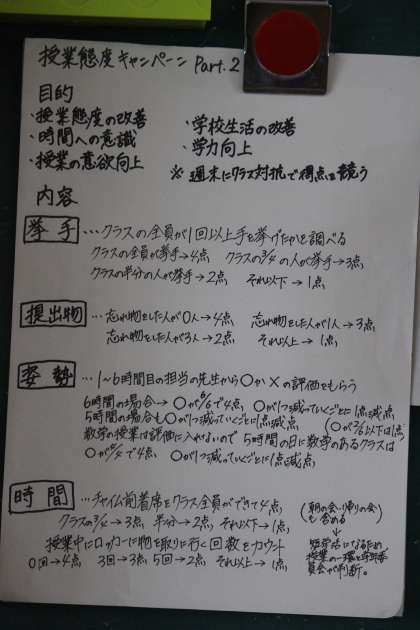 授業態度キャンペーン Part.2
目的
・授業態度の改善
・時間への意識
・授業の意欲向上
・学校生活の改善
・学力向上
※ 週末にクラス対抗で得点を競う
内容
挙手 …クラスの全員が1回以上手を挙げたかを調べる
クラスの全員が挙手→4点 クラスの3/4の人が挙手→3点
クラスの半分の人が挙手→2点 それ以下→1点
提出物 …忘れ物をした人が0人→4点 忘れ物をした人が1人→3点
忘れ物をした人が3人→2点 それ以上→1点
姿勢 …1~6時間目の担当の先生から○か×の評価をもらう
6時間の場合→○が6/6で4点 ○が1つ減っていくごとに1点減点
5時間の場合も○が1つ減っていくごとに1点減点 (○が2/6以下は1点)
数学の授業は評価に入れないので5時間の日に数学のあるクラスは
○が4/4で4点 ○が1つ減っていくごとに1点減点
時間 …チャイム前着席をクラス全員ができて4点
クラスの3/4→3点 半分→2点 それ以下→1点
(朝の会、帰りの会も含める)
授業中にロッカーに物を取りに行く回数をカウント
0回→4点 3回→3点 5回→2点 それ以上→1点